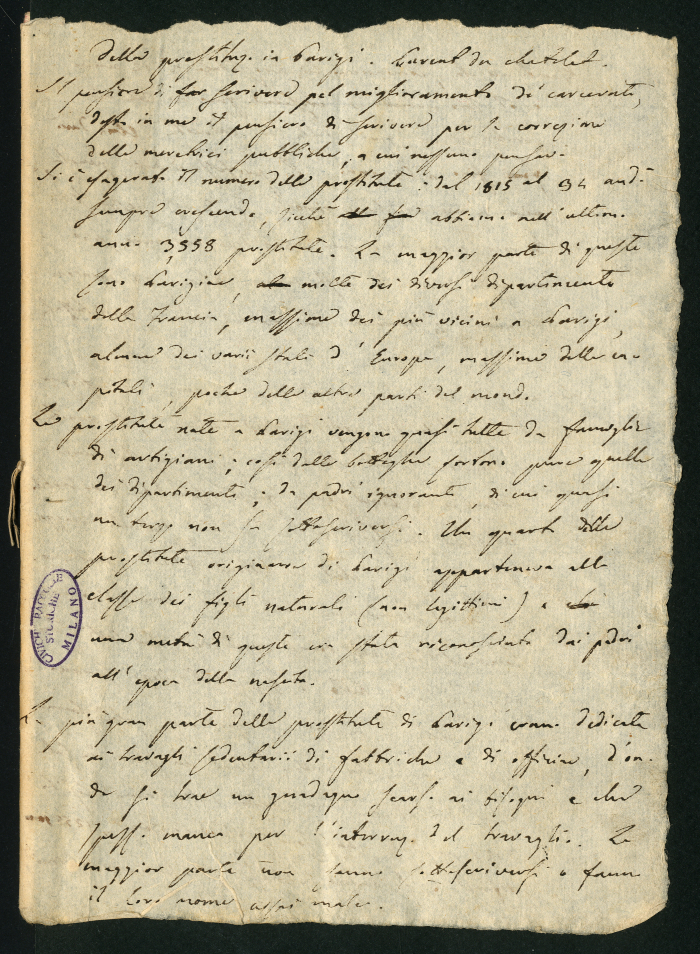 della prostituz. in Parigi. Parent du chatelet.
Il pensiero di far scrivere pel miglioramento de' carcerati,
destò in me il pensiero di scrivere per la correzione
delle meretrici pubbliche, a cui nessuno pensava.
Si è esagerato il numero delle prostitute: dal 1815 al 34 andò
sempre crescendo, sicchè abbiamo nell' ultimo
anno 3,558 prostitute. La maggior parte di queste
sono Parigine, molte dei diversi dipartimenti
della Francia, massime dei più vicini a Parigi,
alcune dei varii stati d' Europa, massime delle ca-
pitali, poche delle altre parti del mondo.
Le prostitute nate a Parigi vengono quasi tutte da famiglie
di artigiani; così dalle botteghe sortono pure quelle
dei dipartimenti; da padri ignoranti, di cui quasi
un terzo non sa sottoscriversi. Un quarto delle
prostitute originarie di Parigi apparteneva alla
classe dei figli naturali (non legittimi) e
una metà di queste era stata riconosciuta dai padri
all' epoca della nascita.
La più gran parte delle prostitute di Parigi erano dedicate
ai travagli sedentarii di fabbriche e di officine, d'on-
de si trae un guadagno scarso ai bisogni e che
spesso manca per l'interruz. del travaglio. La
maggior parte non sanno sottoscriversi o fanno
il loro nome assai male.
CIVICHE RACCOLTE
STORICHE
MILANO